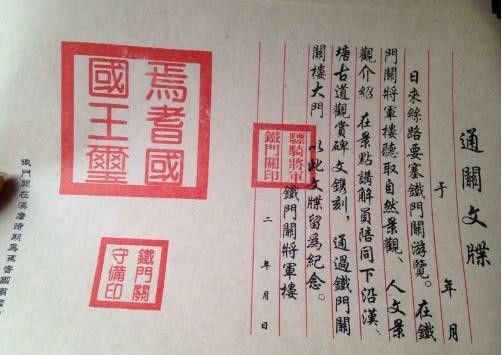 通關文牒
于 年 月
日來絲路要塞鐵門關游覽。在鐵
門關將軍樓聽取自然景觀、人文景
觀介紹 在景點講解員陪同下沿漢、
塘古道觀賞碑文鐫刻，通過鐵門關
闕樓大門 以此文牒留為紀念。
鐵門關將軍樓
二 年 月 日
驃騎將軍
鐵門關印
焉耆國
國王璽
鐵門關
守備印
鐵門關在漢唐時期為焉耆國南